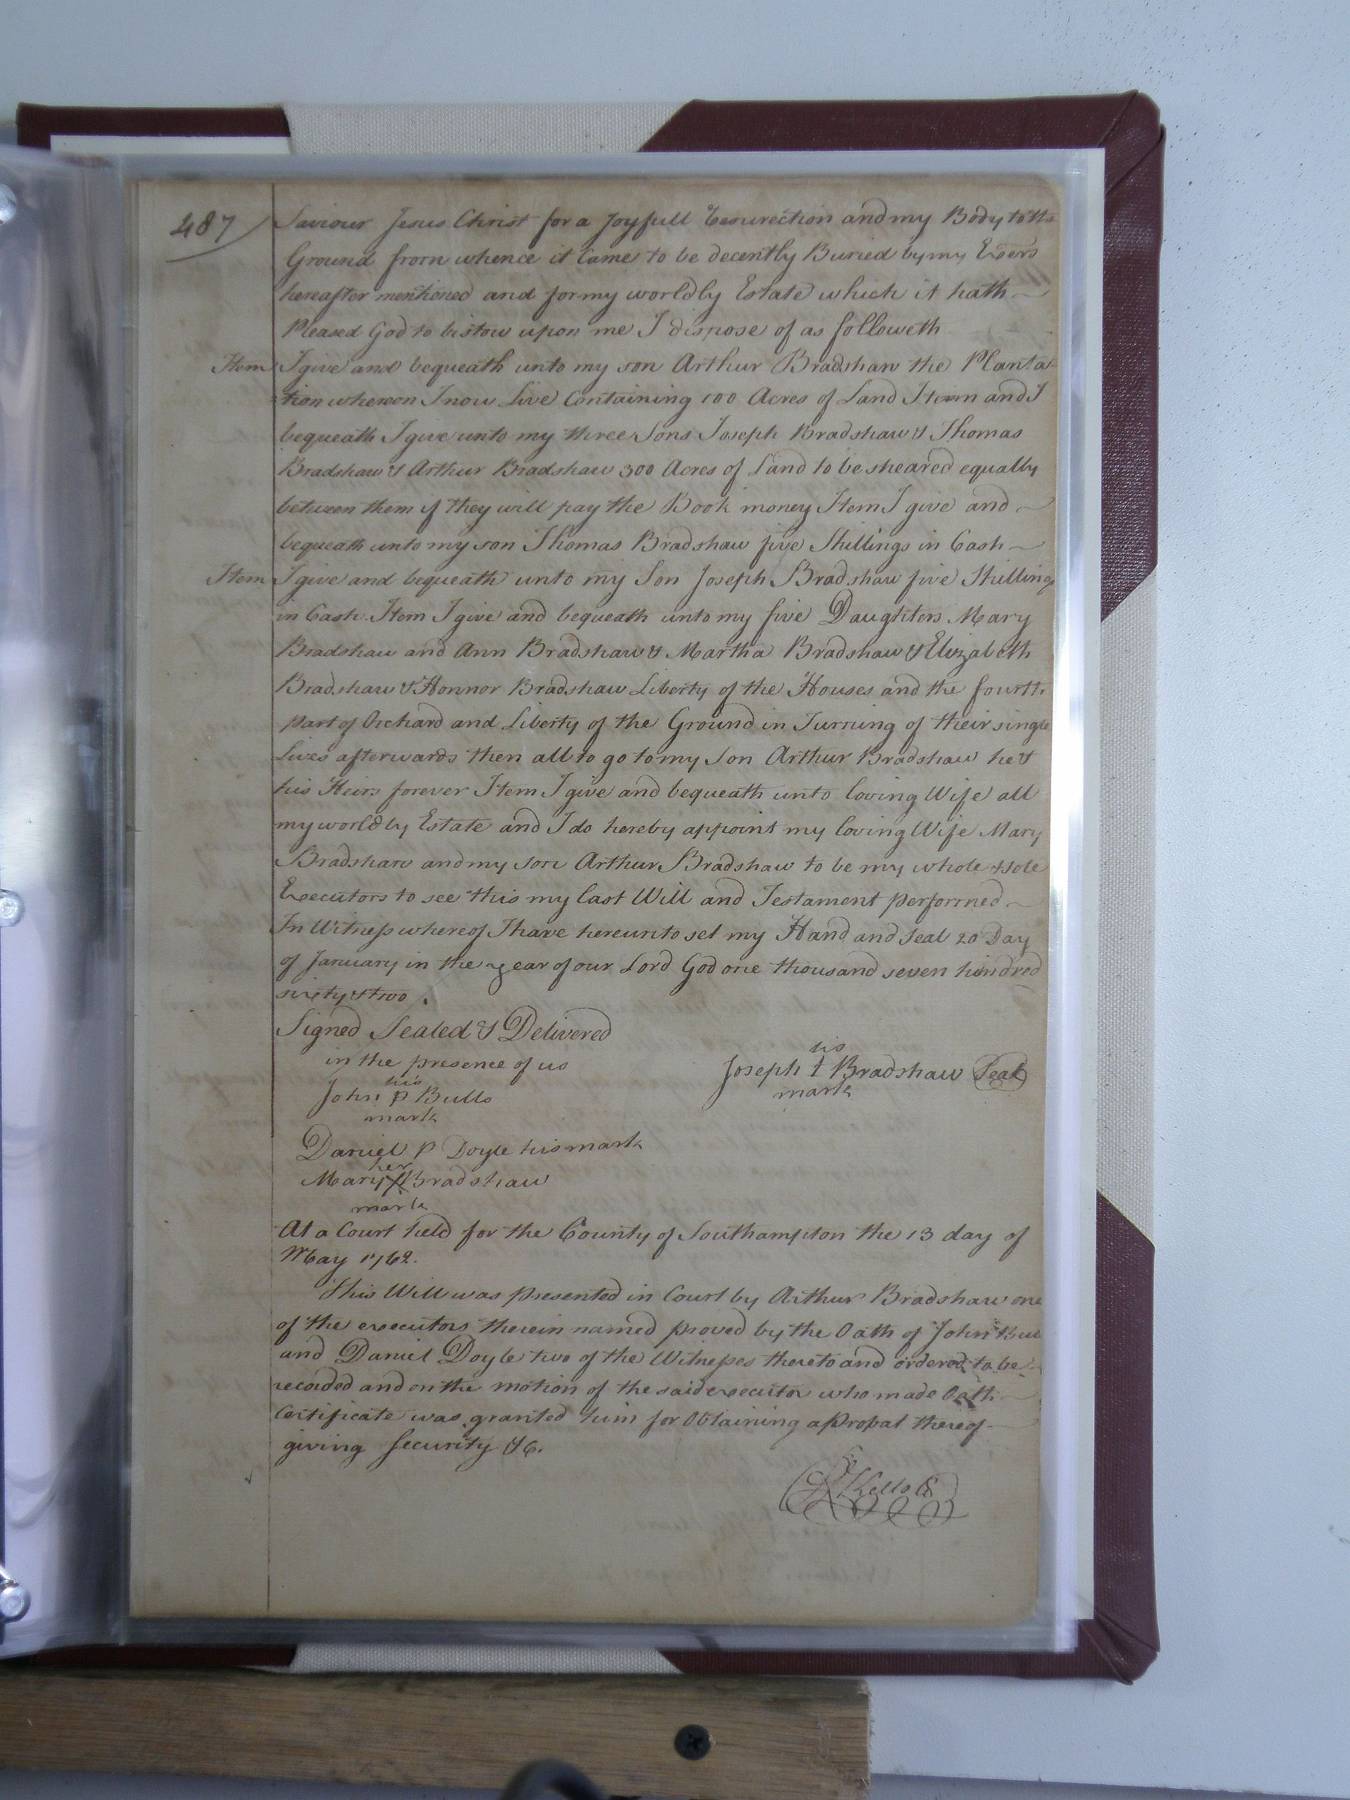 487
Saviour Jesus Christ for a Joyfull Resurection and my Body to the
Ground from whence it Came to be decently Buried by my Exers
hereafter mentioned and for my worldly Estate which it hath
Pleased God to bistow upon me I dispose of as followeth
Item I give and bequeath unto my son Arthur Bradshaw the Planta
tion whereon I now Live Containing 100 Acres of Land Item and I
bequeath I give unto my three Sons Joseph Bradshaw & Thomas
Bradshaw & Arthur Bradshaw 300 Acres of Land to be sheared equally
between them if they will pay the Book money Item I give and
bequeath unto my son Thomas Bradshaw five Shillings in Cash
Item I give and bequeath unto my Son Joseph Bradshaw five Shillings
in Cash Item I give and bequeath unto my five Daughters Mary
Bradshaw and Ann Bradshaw & Martha Bradshaw & Elizabeth
Bradshaw & Honnor Bradshaw Liberty of the Houses and the fourth
part of Orchard and Liberty of the Ground in Turning of their single
Lives afterwards then all to go to my Son Arthur Bradshaw he &
his Heirs forever Item I give and bequeath unto loving Wife all
my worldly Estate and I do hereby appoint my loving Wife Mary
Bradshaw and my son Arthur Bradshaw to be my whole & sole
Executors to see this my last Will and Testament performed
In Witness whereof I have hereunto set my Hand and Seal 20 Day
of January in the year of our Lord God one thousand seven hundred
sixty & two.
Signed Sealed & Delivered
in the presence of us
his
Joseph I Bradshaw Seal
mark
his
John P Bulls
mark
Daniel P Doyle his mark
her
Mary X Bradshaw
mark
At a Court held for the County of Southampton the 13 day of
May 1762.
This Will was presented in Court by Arthur Bradshaw one
of the executors therein named proved by the Oath of John Bull
and Daniel Doyle two of the Witnesses thereto and ordered to be
recorded and on the motion of the said executor who made Oath
Certificate was granted him for Obtaining a Probat thereof
giving Security &c.